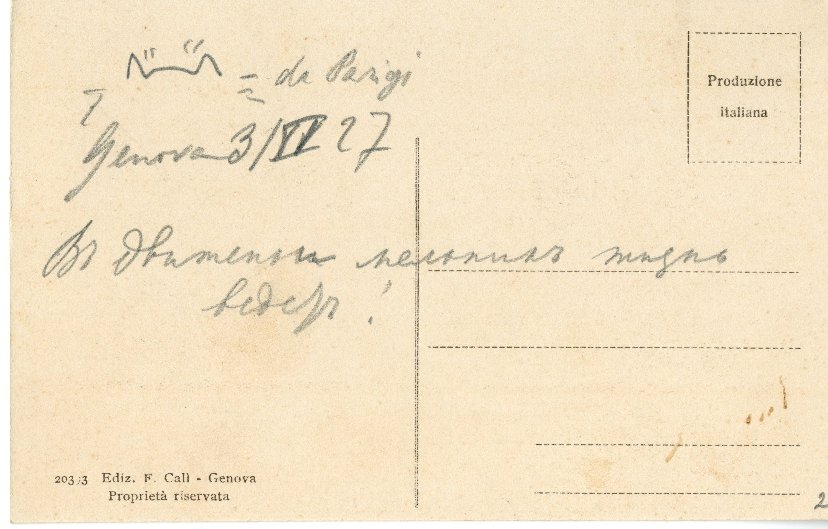 da Parigi
Genova 3/IV 27
Въ движеньи мельникъ жизнь
ведетъ!
Produzione
italiana
Ediz. F. Calì - Genova
Proprietà riservata
2